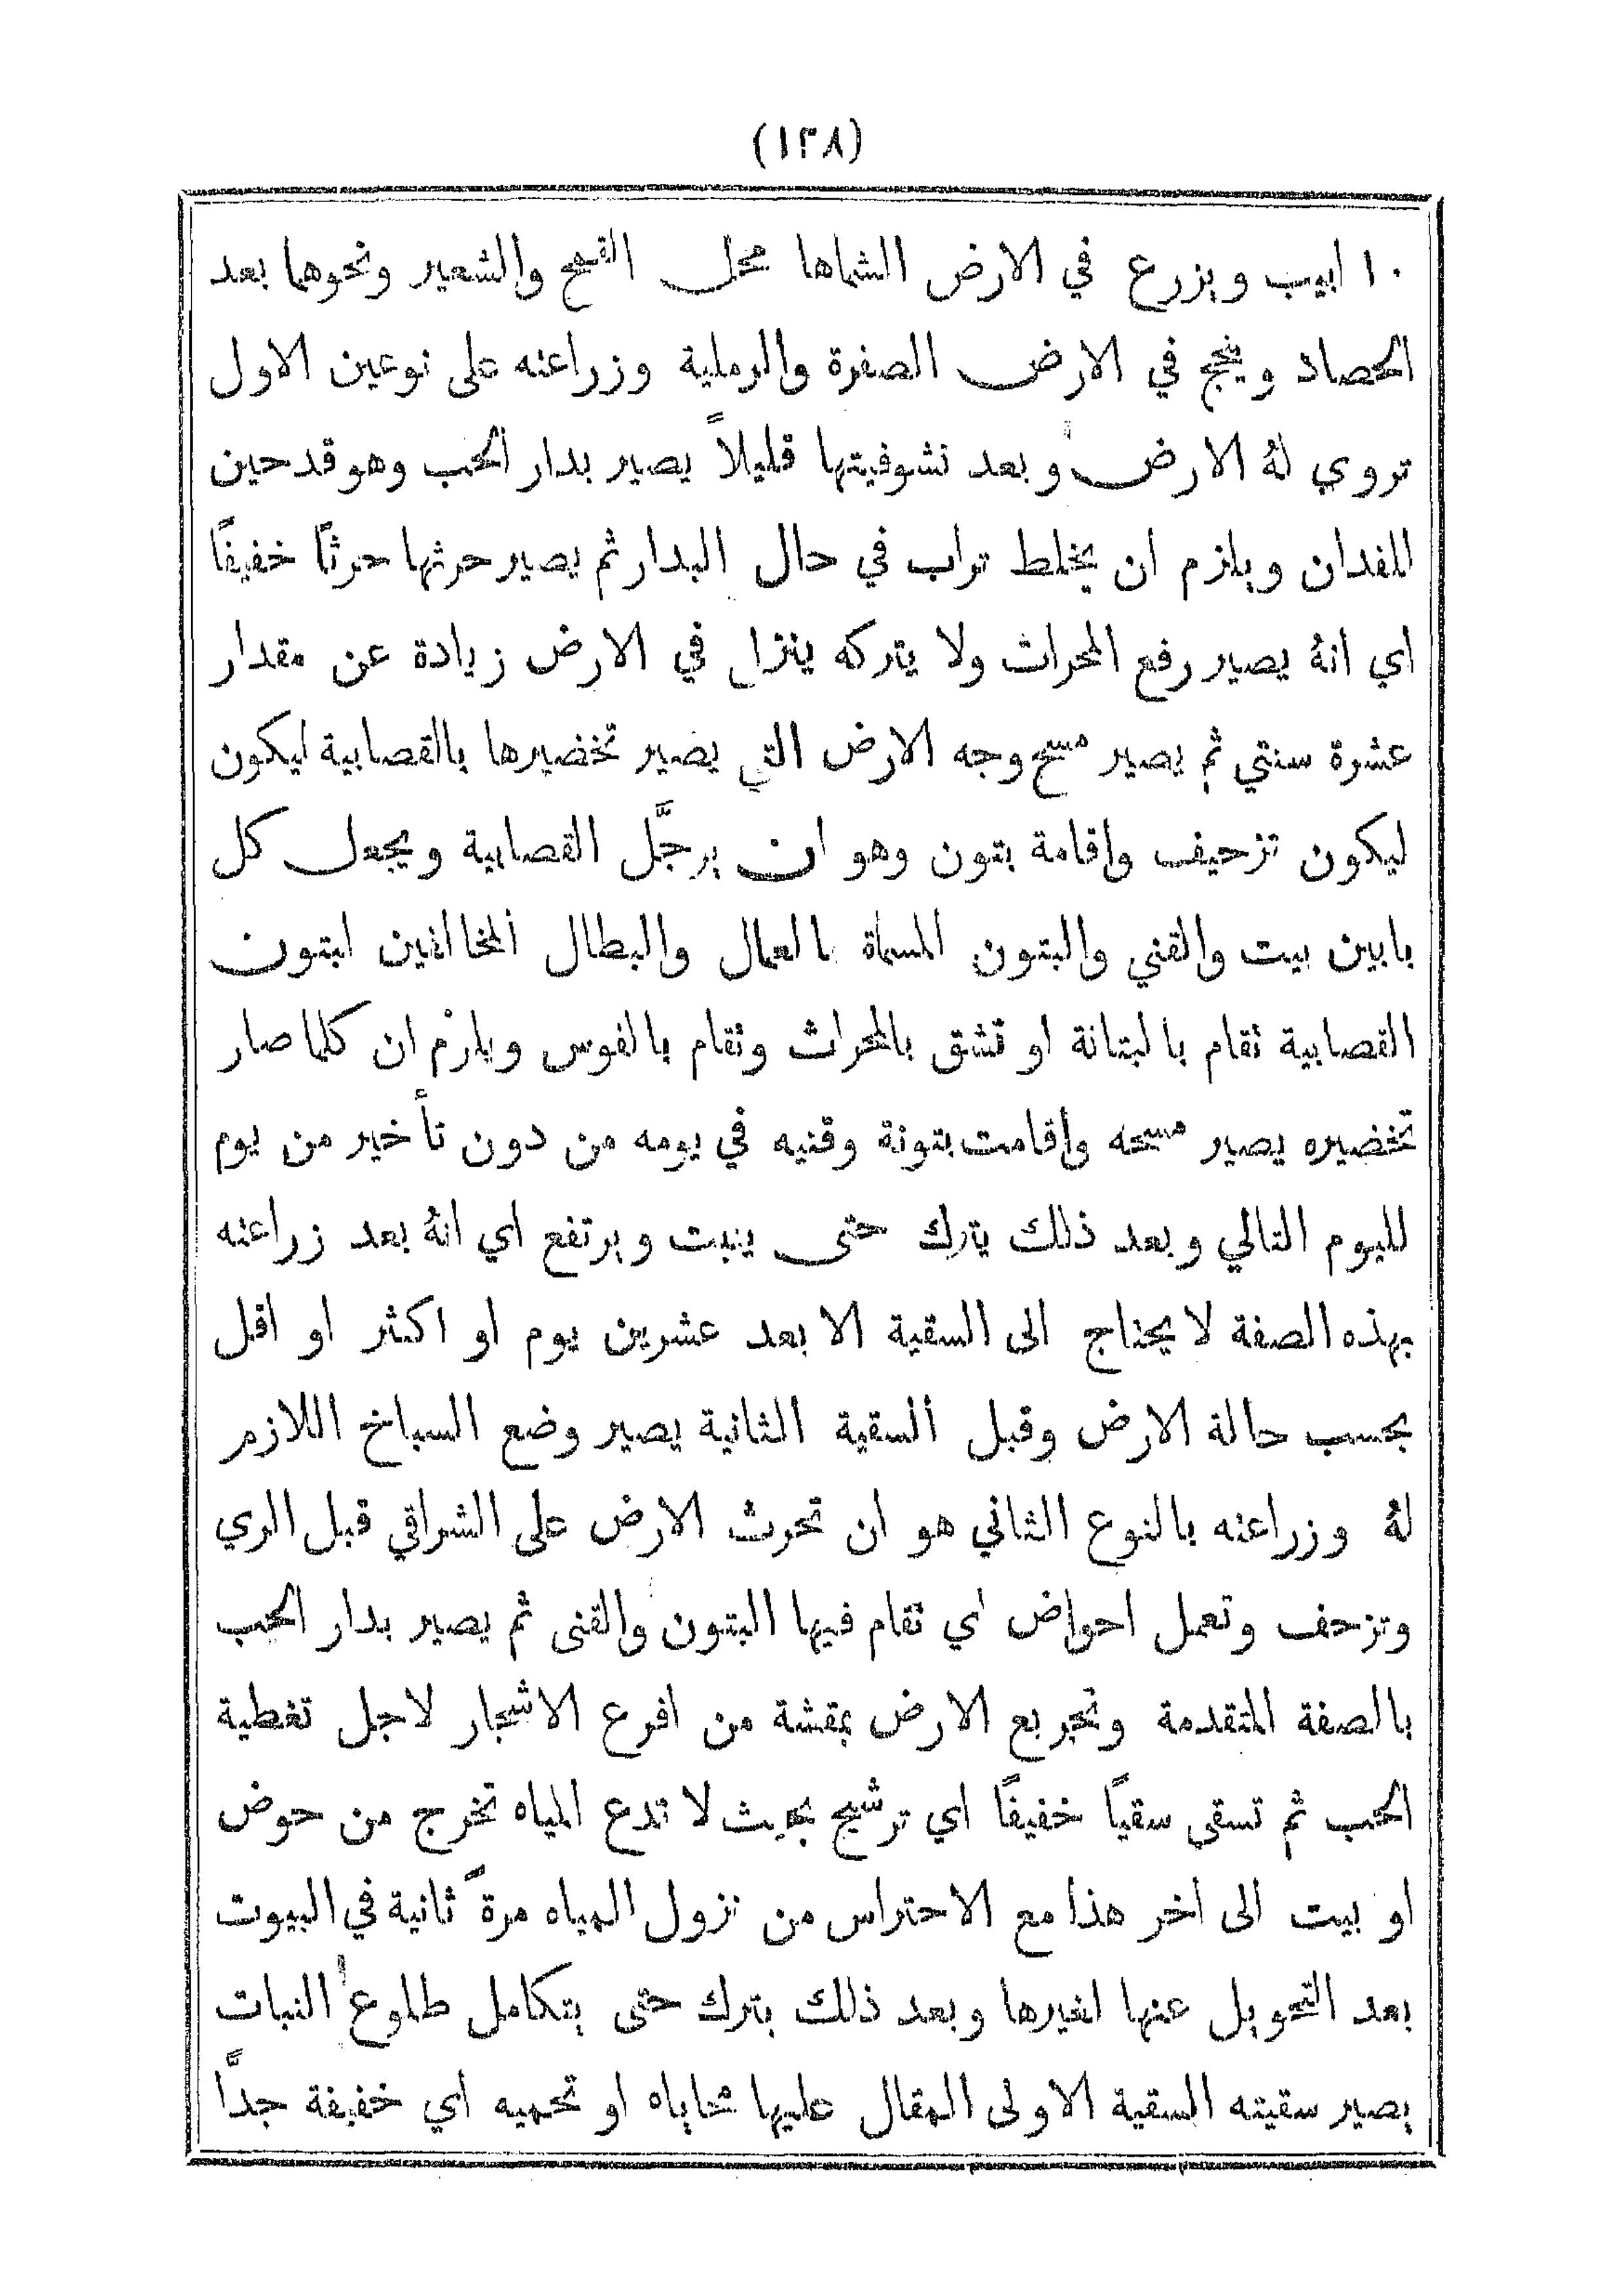 (١٣٨)
١٠ ابيب ويزرع في الارض الشماها محل القمح والشعير ونحوها بعد
الحصاد وينجح في الارض الصفرة والرملية وزراعته على نوعين الاول
تروي لهُ الارض وبعد نشوفيتها قليلاً يصير بدار الحب وهو قدحين
للفدان ويلزم ان يخلط تراب في حال البدار ثم يصير حرثها حرثاً خفيفاً
اي انهُ يصير رفع المحراث ولا يتركه ينزل في الارض زيادة عن مقدار
عشرة سنتي ثم يصير مسح وجه الارض التي يصير تخضيرها بالقصابية ليكون
ليكون تزحيف واقامة بتون وهو ان يرجَّل القصابية ويجعل كل
بابين بيت والقني والبتون المسماة بالعمال والبطال المخالفين لبتون
القصابية نقام بالبتانة او تشق بالمحراث ونقام بالفوس ويلزم ان كلما صار
تخضيره يصير مسحه واقامت بتونة وقنيه في يومه من دون تأخير من يوم
لليوم التالي وبعد ذلك يترك حتى ينبت ويرتفع اي انهُ بعد زراعته
بهذه الصفة لا يحتاج الى السقية الا بعد عشرين يوم او اكثر او اقل
بحسب حالة الارض وقبل السقية الثانية يصير وضع السباخ اللازم
لهُ وزراعته بالنوع الثاني هو ان تحرث الارض على الشراقي قبل الري
وتزحف وتعمل احواض اي نقام فيها البتون والقنى ثم يصير بدار الحب
بالصفة المتقدمة وتجربع الارض بمقشة من افرع الاشجار لاجل تغطية
الحب ثم تسقى سقياً خفيفاً اي ترشيح بحيث لا تدع المياه تخرج من حوض
او بيت الى اخر هذا مع الاحتراس من نزول المياه مرة ثانية في البيوت
بعد التحويل عنها لغيرها وبعد ذلك يترك حتى يتكامل طلوع النبات
يصير سقيته السقية الاولى المقال عليها محاياه او تحميه اي خفيفة جداً